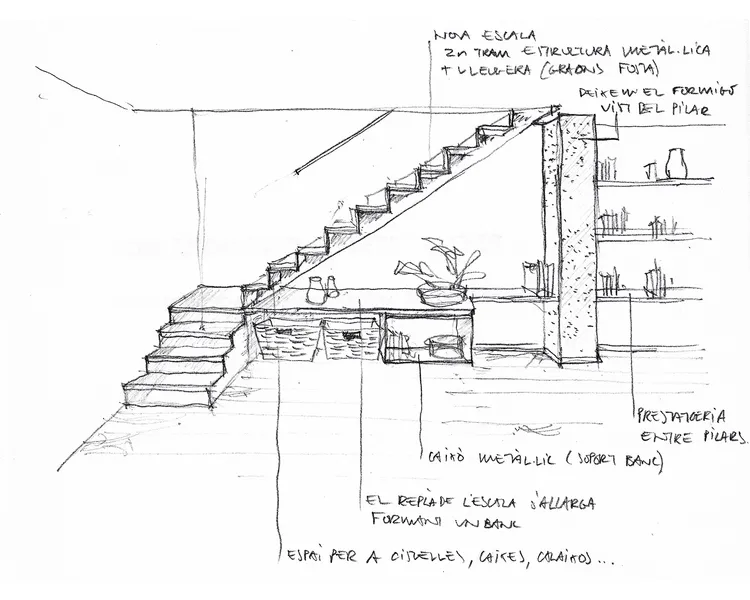 NOVA ESCALA
2n TRAM ESTRUCTURA METÀL.LICA
+ LLEUGERA (GRAONS FUSTA)
DEIXEM EL FORMIGÓ
VIST DEL PILAR
PRESTATGERIA
ENTRE PILARS
CAIXÓ METÀL.LIC (SUPORT BANC)
EL REPLÀ DE L'ESCALA S'ALLARGA
FORMANT UN BANC
ESPAI PER A CISTELLES, CAIXES, CALAIXOS...